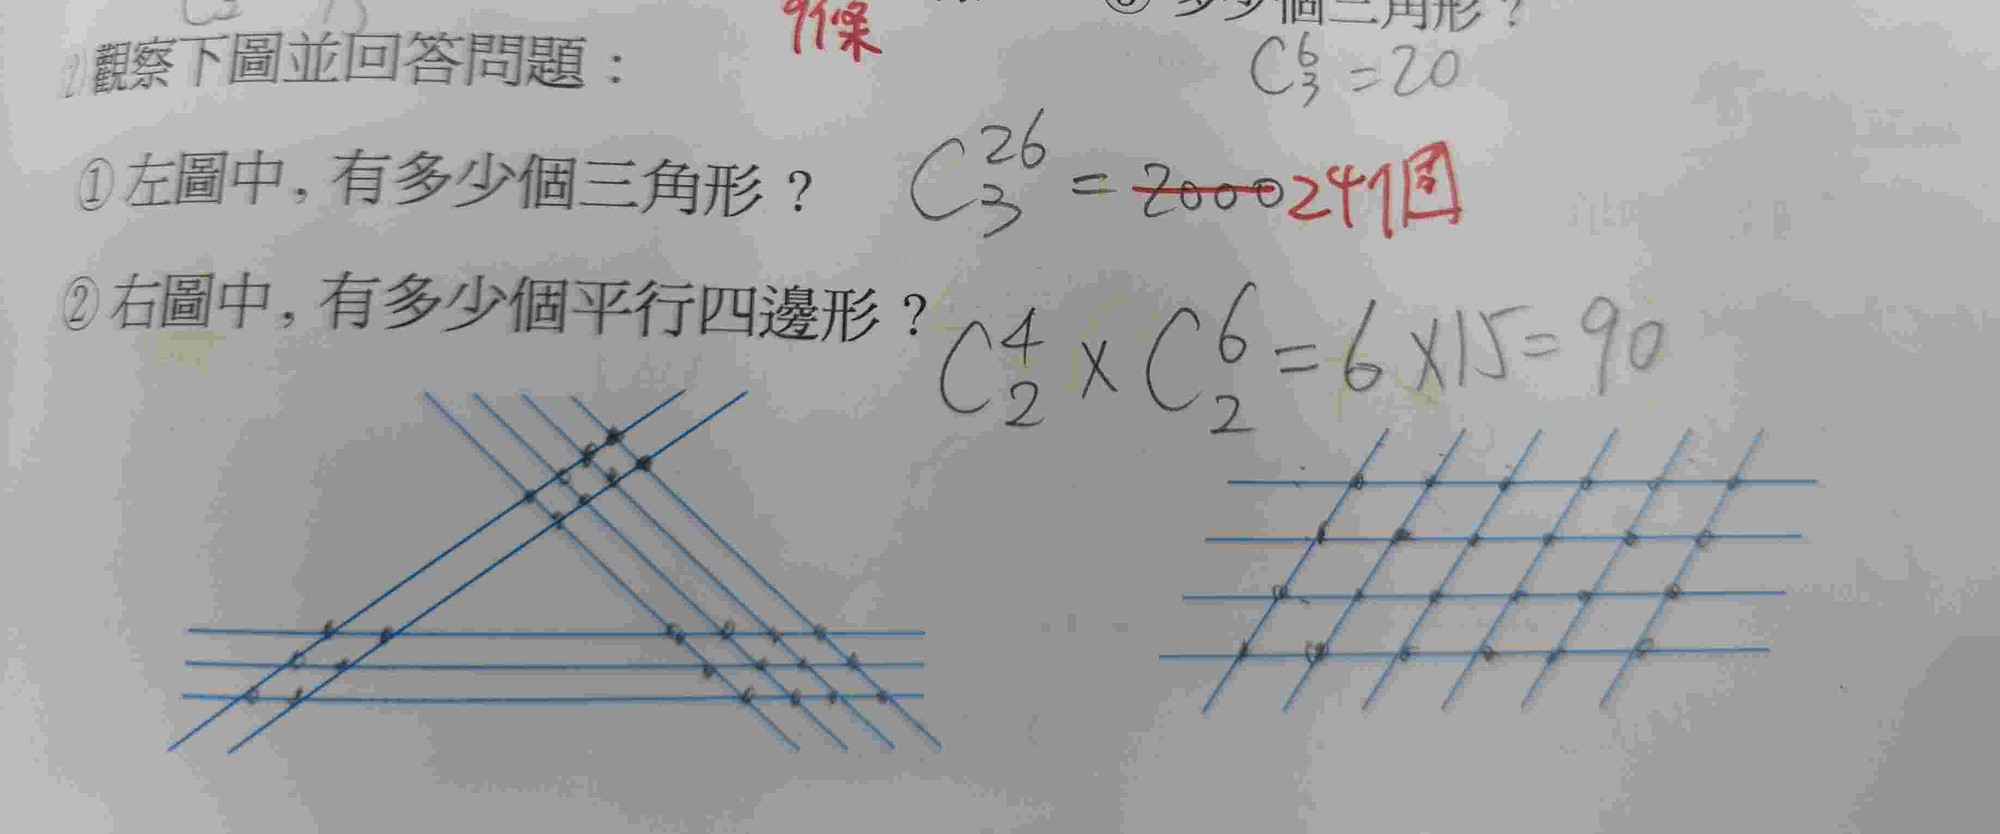 9條
多少個三角形？
2.觀察下圖並回答問題：
C₃⁶=20
①左圖中，有多少個三角形？ C₃²⁶=2000 24個
②右圖中，有多少個平行四邊形？ C₂⁴×C₂⁶=6×15=90